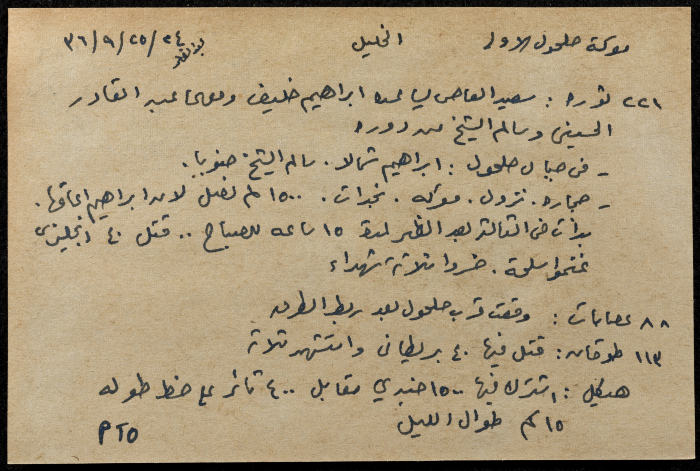 معركة حلحول الاولى الخليل ٢٤/٢٥/٩/٣٦
بعد الظهر
٢٢١ ثورة : سعيد العاص ابراهيم خليف ومعهما عبد القادر
الحسيني وسالم الشيخ من دورة
- في جبال حلحول : ابراهيم شمالا . سالم الشيخ جنوبا .
- حجارة . نزول . معركة . نجدات . ١٥٠٠ لم تصل لان ابراهيم اعاقها .
بدأت في الثالثة بعد الظهر لمدة ١٥ ساعة للصباح .. قتل ٤٠ انجليزي
غنموا اسلحة . خسروا ثلاثة شهداء
٨٨ عصابات : وقعت قرب حلحول بعد ربط الطرق
١١٣ طوقان : قتل فيها ٤٠ بريطاني واستشهد ثلاثة
هيكل : اشترك فيها ١٥٠٠ جندي مقابل ٤٠٠ ثائر على خط طوله
١٥ كم طوال الليل
PTO